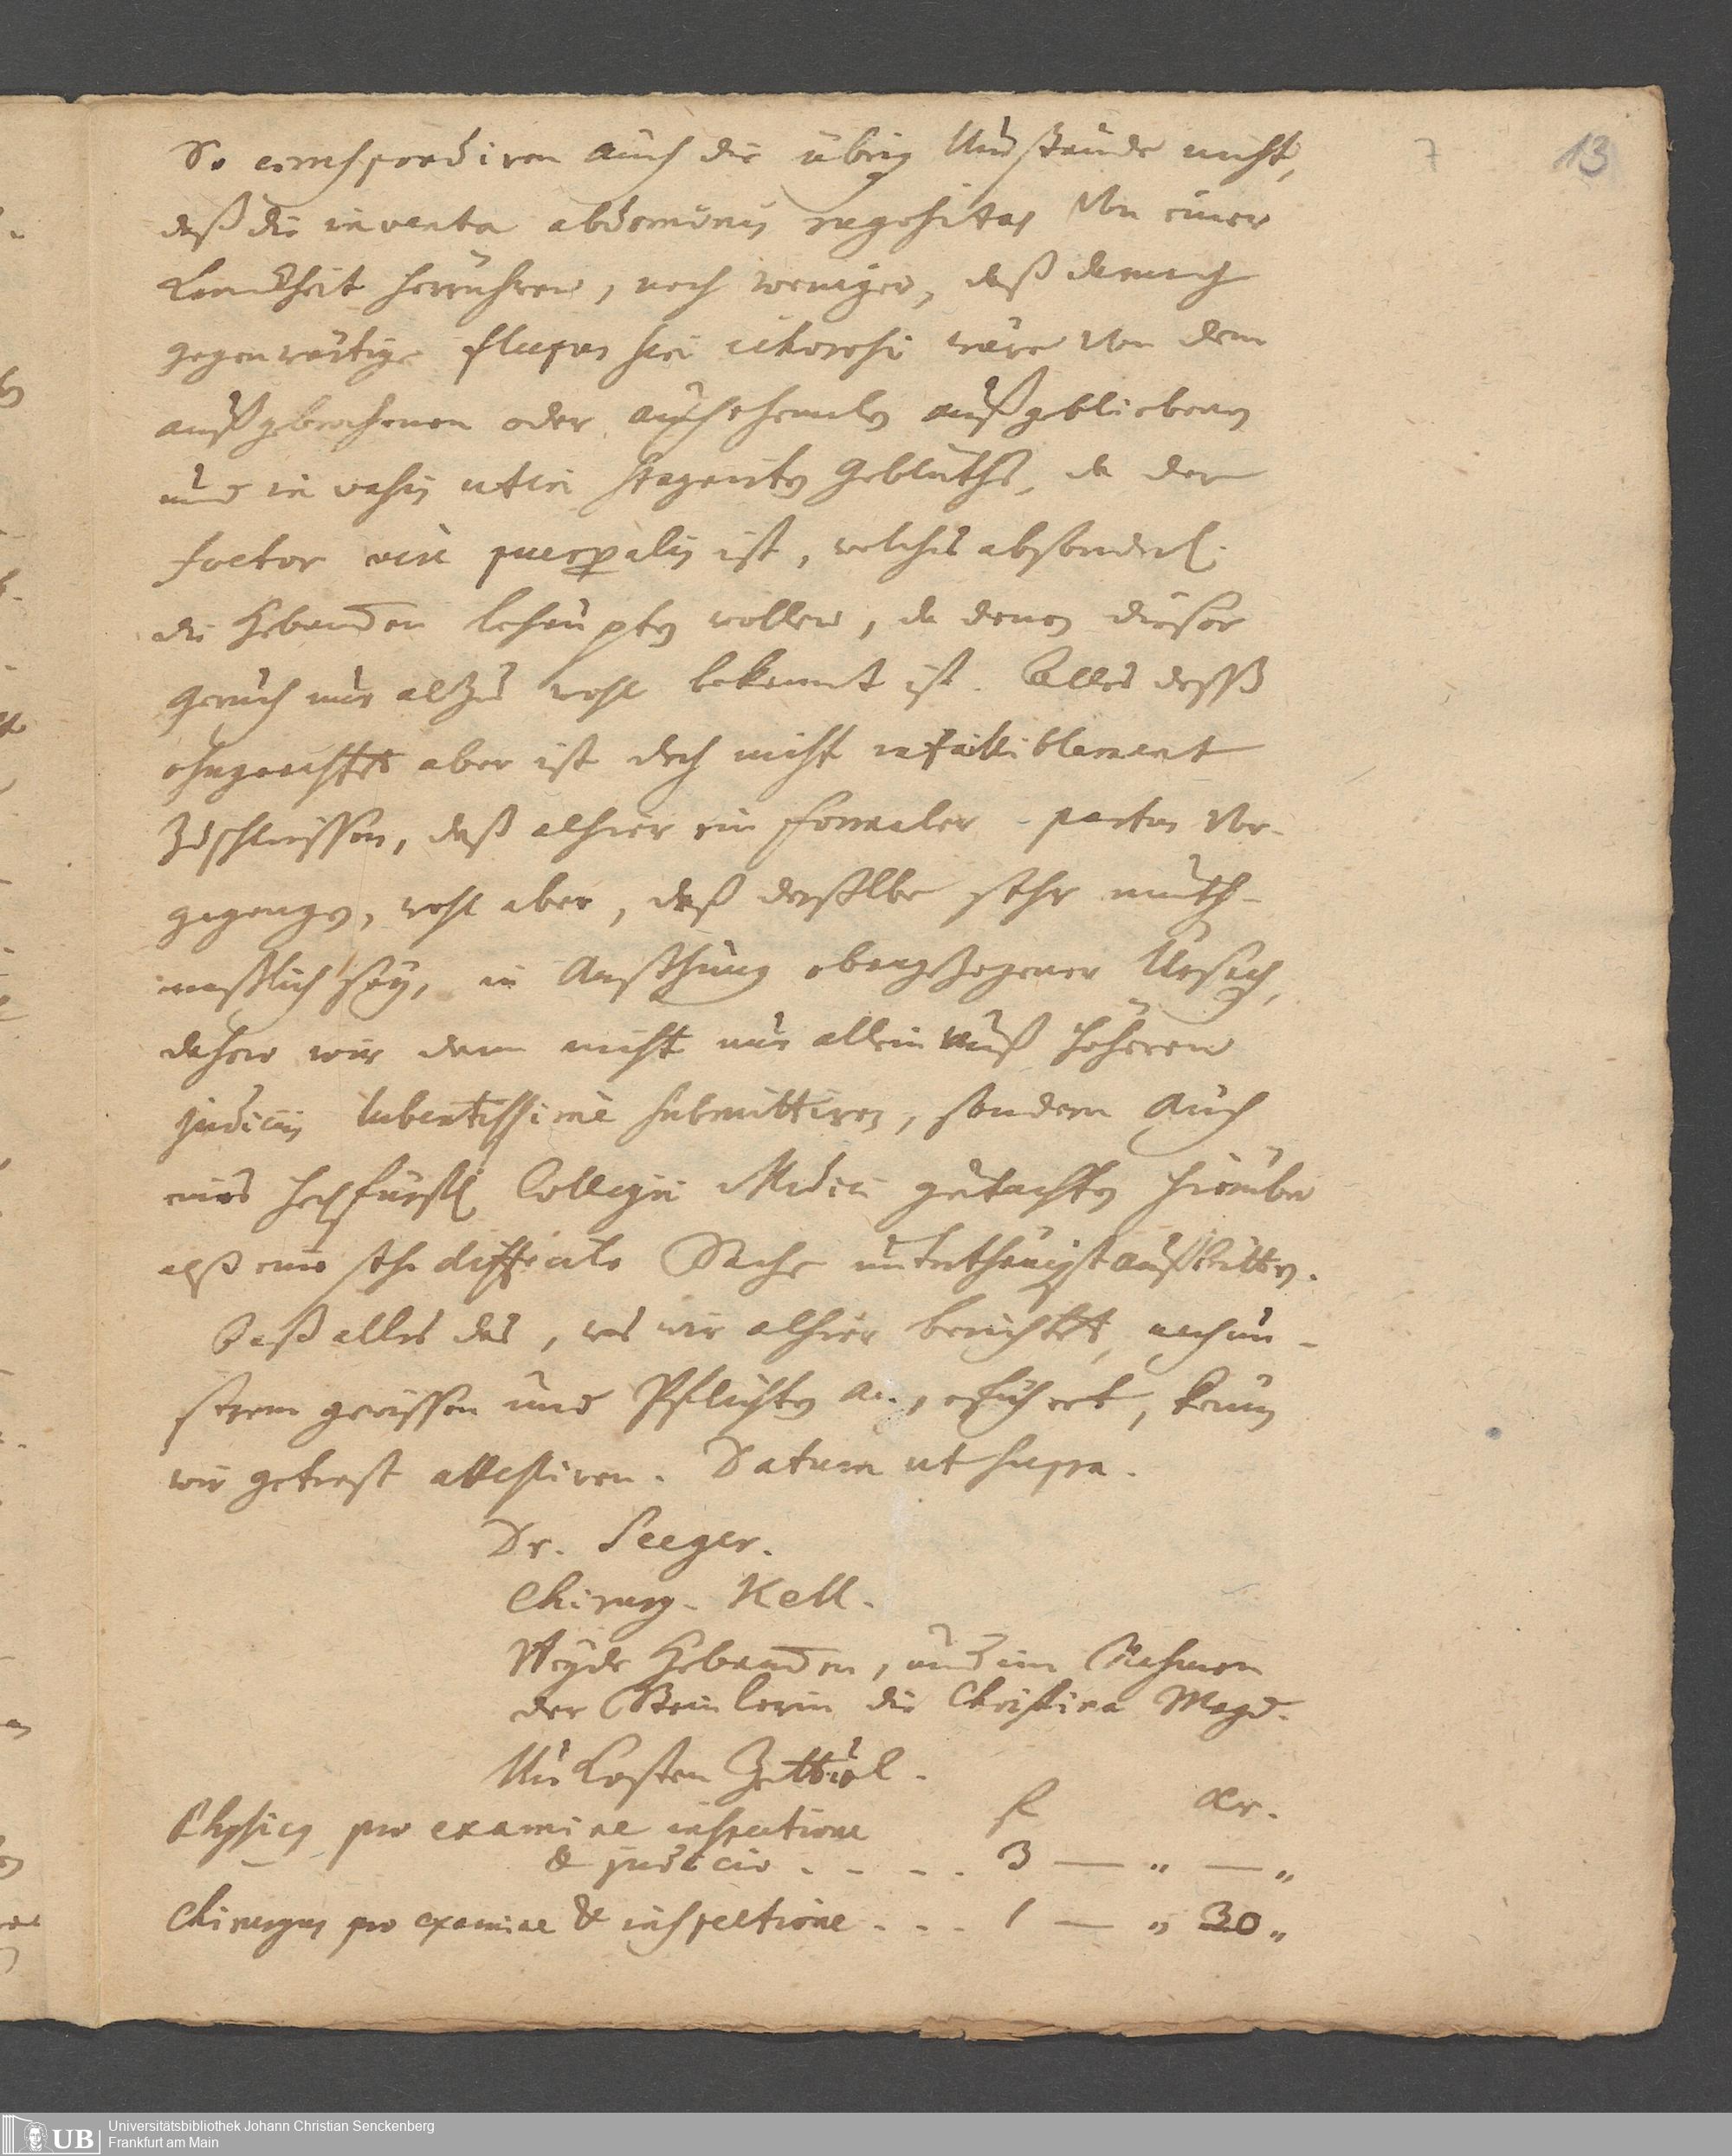 7 13
So correspondiren auch die übrig Umstände nicht,
daß die inventa abdominis rugositas von einer
Kranckheit herrühren, noch weniger, daß dennoch
gegenwärtige fluxus sui ichorosi wäre von dem
außgebrochenen oder auch ehemals außgebliebenen
und in vasis uteri stagnirten Geblüths, da der
foetor vere puerperalis ist, welches absonderl.
die Hebammen behaupten wollen, da denen dieser
Geruch nur allzu wohl bekannt ist. Alles dessen
ohngeachtet aber ist doch nicht infailliblement
zuschliessen, daß alhier ein formaler partus vor-
gegangen, wohl aber, daß derselbe sehr muth-
maßlich sey, in Ansehung obangezogener Ursach,
dahero wir dann nicht nur allein höheren
judiciis lubentissime submittiren, sondern auch
eines hochfürstl Collegii Medici gutachten hierüber
alß eine sehr difficile Sache unterthänigst außbitten.
Daß alles das, was wir alhier berichtet, nach un-
serem gewissen und Pflichten können
wir getrost attestiren. Datum ut supra.
Dr. Seeger.
Chirurg. Kell.
Beyde Hebammen, und im Nahmen
der die Christina Magd.
Unkosten Zettul.
fl xr.
Physicus pro examine inspectione
& judicio . . . . 3 — " — "
Chirurgus pro examine & inspectione . . . 1 — " 30 "
UB Universitätsbibliothek Johann Christian Senckenberg
Frankfurt am Main